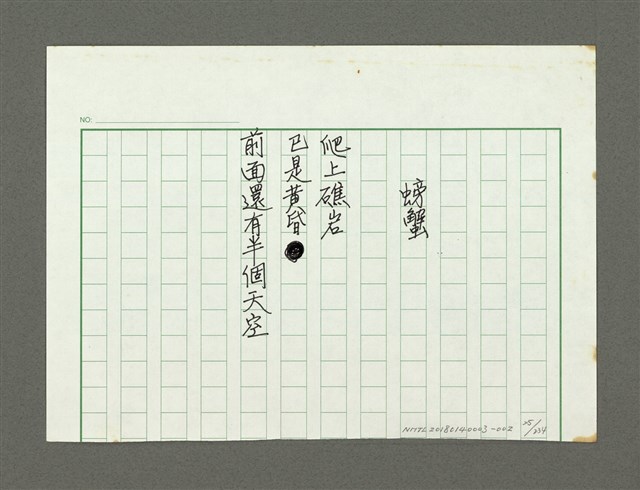 螃蟹
爬上礁岩
已是黃昏
前面還有半個天空
NO:
NMTL20180140003-002
25/234